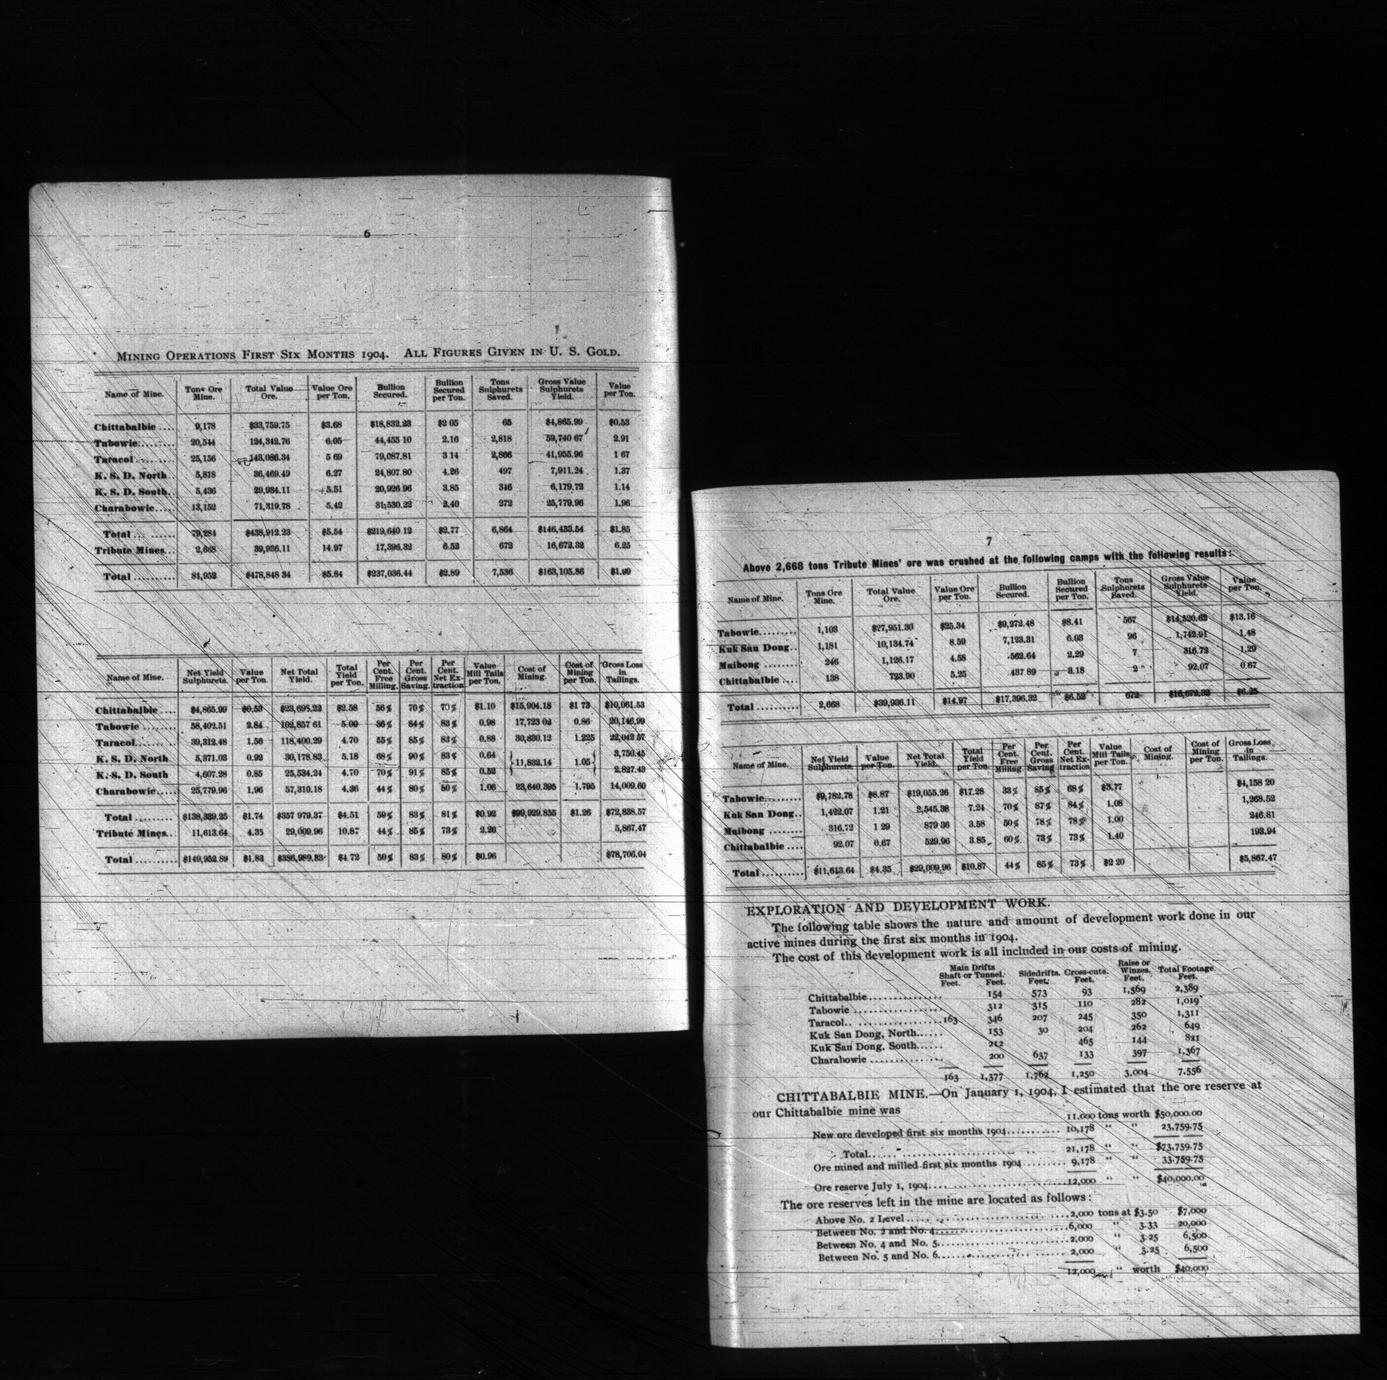 6
MINING OPERATIONS FIRST SIX MONTHS 1904. ALL FIGURES GIVEN IN U. S. GOLD.
Name of Mine. Tons Ore Mine. Total Value Ore. Value Ore per Ton. Bullion Secured. Bullion Secured per Ton. Tons Sulphurets Saved. Gross Value Sulphurets Yield. Value per Ton.
Chittabalbie .... 9,178 $33,759.75 $3.68 $18,832.23 $2 05 65 $4,865.99 $0.53
Tabowie......... 20,544 124,342.76 6.05 44,455 10 2.16 2,818 59,740 67 2.91
Taracol ......... 25,156 143,086.34 5 69 79,087.81 3 14 2,866 41,955.96 1 67
K. S. D. North.. 5,818 36,469.49 6.27 24,807.80 4.26 497 7,911.24 1.37
K. S. D. South.. 5,436 29,934.11 5.51 20,926.96 3.85 346 6,179.72 1.14
Charabowie..... 13,152 71,319.78 5.42 31,530.22 2.40 272 25,779.96 1.96
Total ... ...... 79,284 $438,912.23 $5.54 $219,640 12 $2.77 6,864 $146,433.54 $1.85
Tribute Mines... 2,668 39,936.11 14.97 17,396.32 6.52 672 16,672.32 6.25
Total .......... 81,952 $478,848 34 $5.84 $237,036.44 $2.89 7,536 $163,105.86 $1.99
Name of Mine. Net Yield Sulphurets. Value per Ton. Net Total Yield. Total Yield per Ton. Per Cent. Free Milling. Per Cent. Gross Saving. Per Cent. Net Extraction. Value Mill Tails per Ton. Cost of Mining. Cost of Mining per Ton. Gross Loss in Tailings.
Chittabalbie .... $4,865.99 $0.53 $23,698.22 $2.58 56% 70% 70% $1.10 $15,904.18 $1 73 $10,061.53
Tabowie ........ 58,402.51 2.84 102,857 61 5.00 36% 84% 83% 0.98 17,723 02 0.86 20,146.99
Taracol......... 39,312.48 1.56 118,400.29 4.70 55% 85% 83% 0.88 30,830.12 1.225 22,042 57
K. S. D. North 5,371.03 0.92 30,178.83 5.18 68% 90% 83% 0.64 3,750.45
11,832.14 1.05
K. S. D. South 4,607.28 0.85 25,534.24 4.70 70% 91% 85% 0.52 2,827.43
Charabowie..... 25,779.96 1.96 57,310.18 4.36 44% 80% 80% 1.06 23,640.395 1.795 14,009.60
Total .......... $138,339.25 $1.74 $357 979.37 $4.51 50% 83% 81% $0.92 $99,929.855 $1.26 $72,838.57
Tribute Mines.. 11,613.64 4.35 29,009.96 10.87 44% 85% 73% 2.20 5,867.47
Total .......... $149,952.89 $1.83 $386,989.33 $4 72 50% 83% 80% $0.96 $78,706.04
7
Above 2,668 tons Tribute Mines' ore was crushed at the following camps with the following results:
Name of Mine. Tons Ore Mine. Total Value Ore. Value Ore per Ton. Bullion Secured. Bullion Secured per Ton. Tons Sulphurets Saved. Gross Value Sulphurets Yield. Value per Ton.
Tabowie......... 1,103 $27,951.30 $25.34 $9,272.48 $8.41 567 $14,520.62 $13.16
Kuk San Dong.. 1,181 10,134.74 8.59 7,123.31 6.03 96 1,742.91 1.48
Maibong ....... 246 1,126.17 4.58 562.64 2.29 7 316.72 1.29
Chittabalbie .... 138 723.90 5.25 437 89 3.18 2 92.07 0.67
Total .......... 2,668 $39,936.11 $14.97 $17,396.32 $6.52 672 $16,672.32 $6.25
Name of Mine. Net Yield Sulphurets. Value per Ton. Net Total Yield. Total Yield per Ton. Per Cent. Free Milling Per Cent. Gross Saving Per Cent. Net Extraction Value Mill Tails per Ton. Cost of Mining. Cost of Mining per Ton. Gross Loss in Tailings.
Tabowie......... $9,782.78 $8.87 $19,055.26 $17.28 33% 85% 68% $3.77 $4,158 20
Kuk San Dong.. 1,422.07 1.21 8,545.38 7.24 70% 87% 84% 1.08 1,268.52
Maibong ........ 316.72 1 29 879 36 3.58 50% 78% 78% 1.00 246.81
Chittabalbie .... 92.07 0.67 529.96 3.85 60% 73% 73% 1.40 193.94
Total .......... $11,613.64 $4.35 $29,009.96 $10.87 44% 85% 73% $2 20 $5,867.47
EXPLORATION AND DEVELOPMENT WORK.
The following table shows the nature and amount of development work done in our
active mines during the first six months in 1904.
The cost of this development work is all included in our costs of mining.
Main Drifts Shaft or Tunnel. Feet. Feet. Sidedrifts. Feet. Cross-cuts. Feet. Raise or Winzes. Feet. Total Footage Feet.
Chittabalbie............... 154 573 93 1,569 2,389
Tabowie .................. 312 315 110 282 1,019
Taracol.. ................163 346 207 245 350 1,311
Kuk San Dong, North...... 153 30 204 262 649
Kuk San Dong, South...... 212 465 144 821
Charabowie ............... 200 637 133 397 1,367
163 1,377 1,762 1,250 3,004 7,556
CHITTABALBIE MINE.—On January 1, 1904, I estimated that the ore reserve at
our Chittabalbie mine was 11,000 tons worth $50,000.00
New ore developed first six months 1904........... 10,178 " " 23,759.75
Total........ 21,178 " " $73,759.75
Ore mined and milled first six months 1904 ........ 9,178 " " 33,759.75
Ore reserve July 1, 1904.........................12,000 " " $40,000.00
The ore reserves left in the mine are located as follows:
Above No. 2 Level..............................2,000 tons at $3.50 $7,000
Between No. 2 and No. 4........................6,000 " 3.33 20,000
Between No. 4 and No. 5........................2,000 " 3.25 6,500
Between No. 5 and No. 6........................ 2,000 " 3.25 6,500
12,000 " worth $40,000